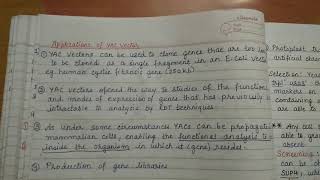 Applications of YAC Vector
1) YAC Vectors can be used to clone genes that are too
to be cloned as a single fragment in an E-Coli vector
eg. human cystic fibrosis gene (250kb)
2) YAC vectors opened the way to studies of the functions
and modes of expression of genes that has previously
intractable in analysis by RDT techniques
3) As under some circumstances YACs can be propagated
mammalian cells, enabling the functional analysis to
inside the organism in which it (gene) resides.
4) Production of gene libraries
Protoplast
artificial
Selection:
used
on minimal
containing
are able
** Any
to grow
absent
Screening:
can be
SUP4,